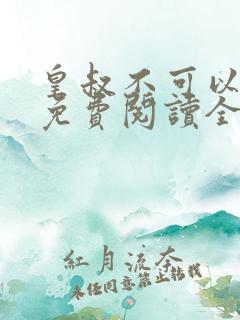 皇叔不可以
免費閱讀全
紅月流奈
未經同意禁止轉載